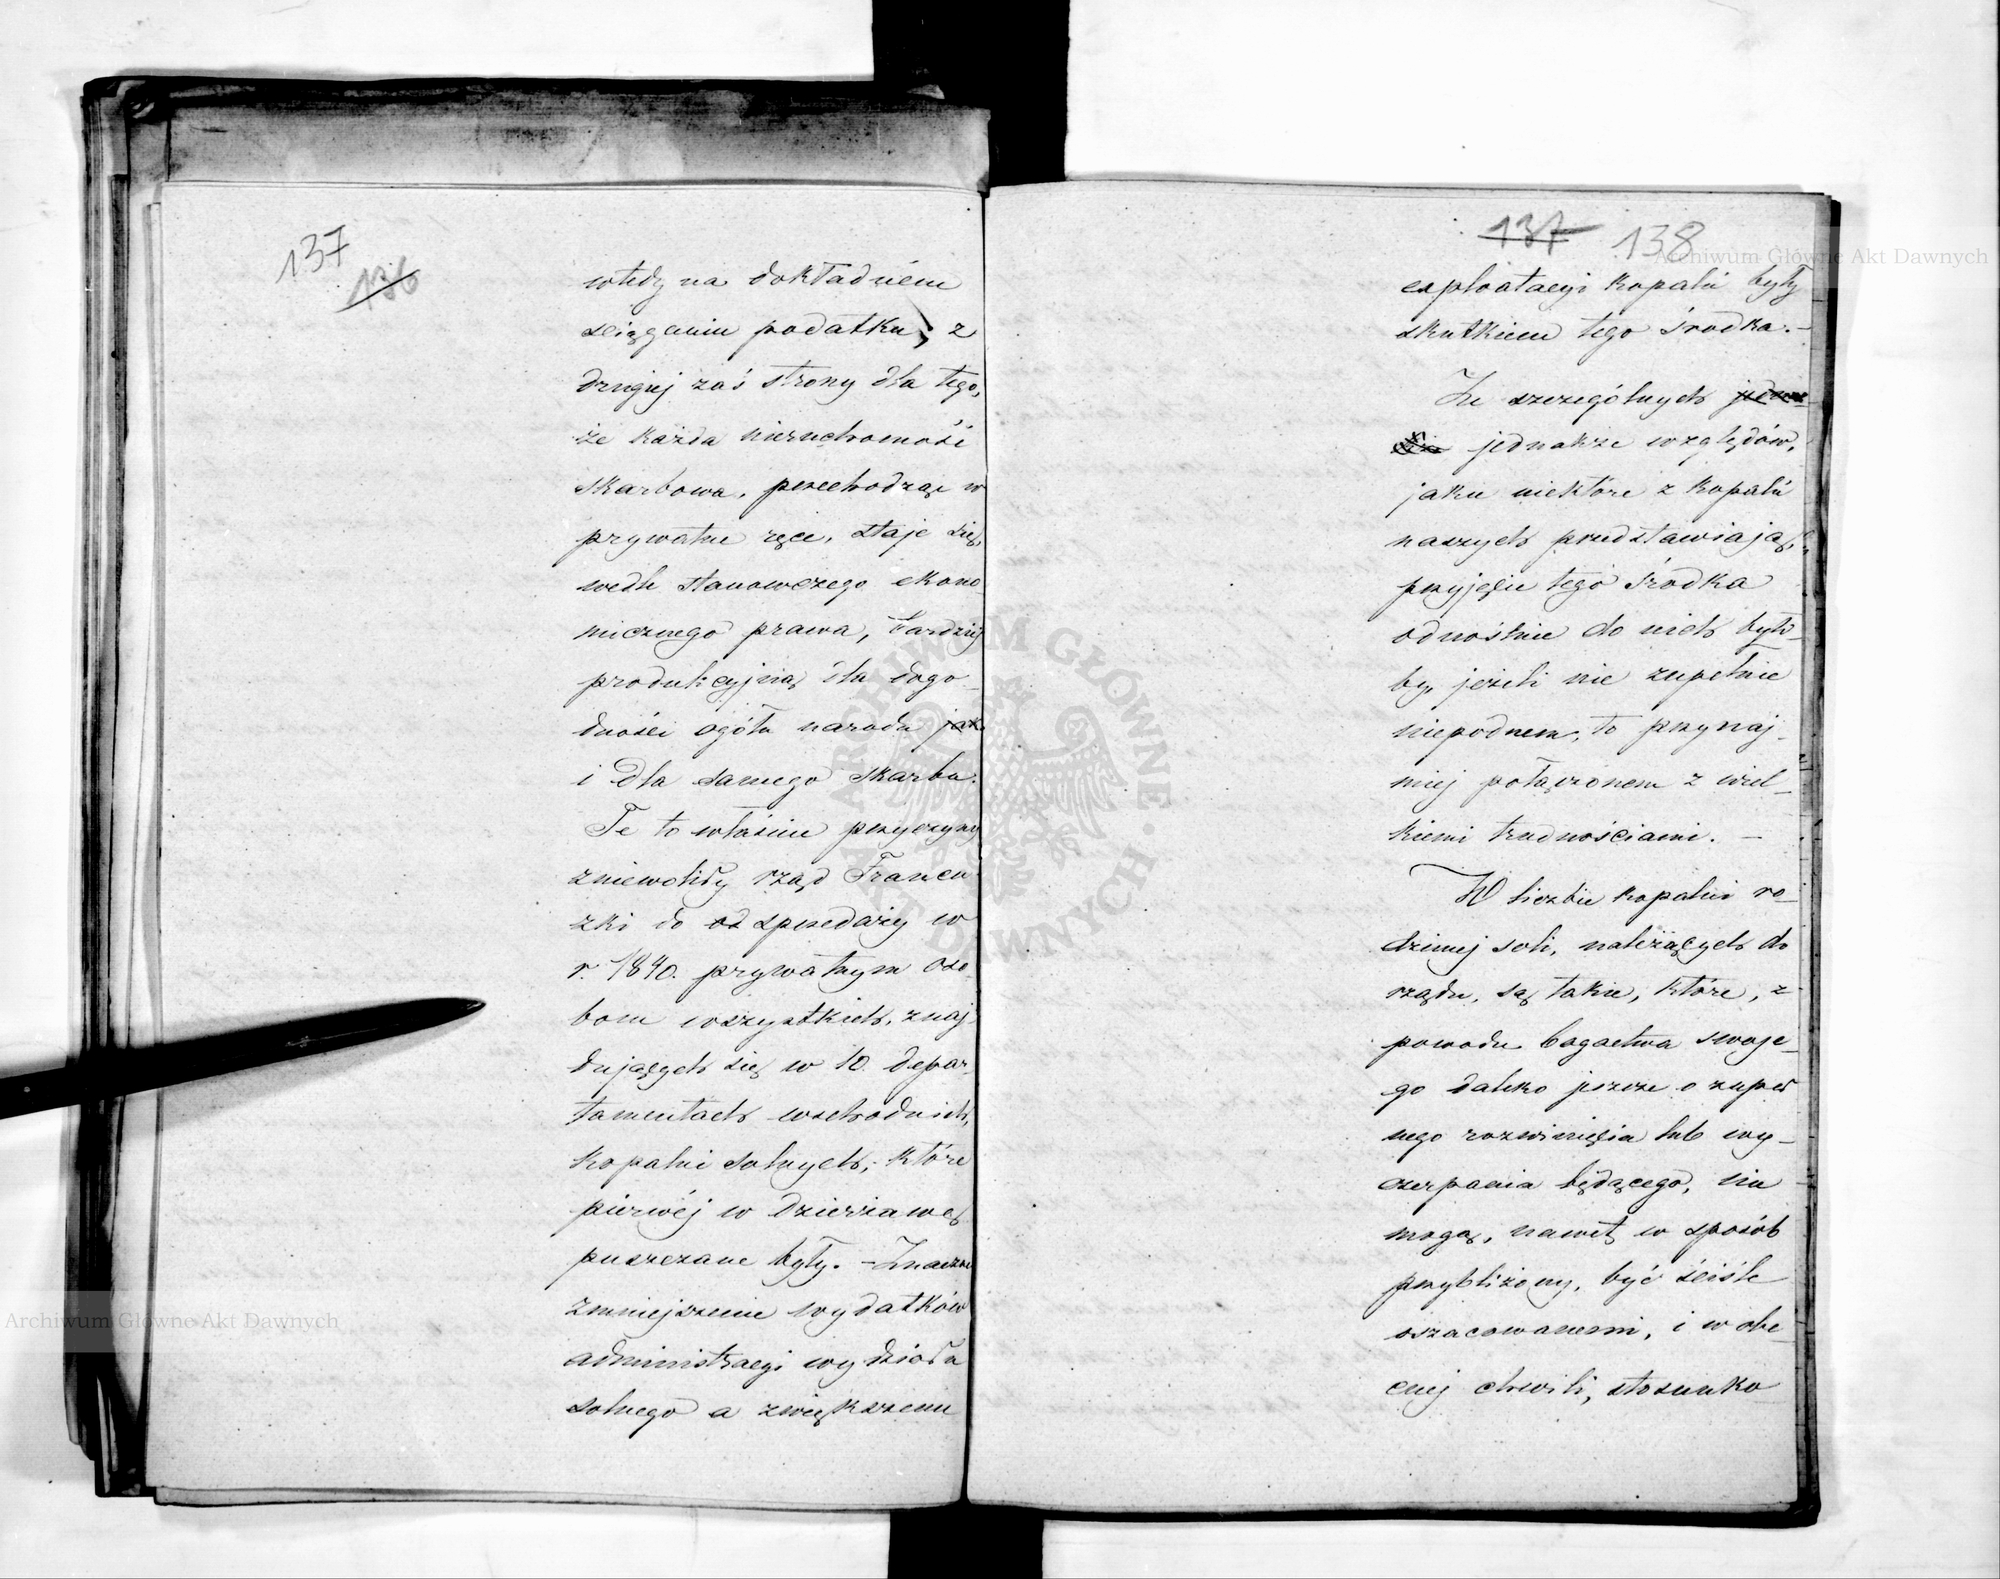 137
136
wtedy na dokładném
ściąganiu podatku; z
drugiej zaś strony dla tego,
że każda nieruchomość
skarbowa, przechodząc w
prywatne ręce, staje się,
wedle stanowczego ekono
micznego prawa, bardziej
produkcyjną dla dogo_
dności ogółu narodu jak
i dla samego skarbu.
Te to właśnie przyczyny
zniewoliły rząd Francu
zki do od sprzedaży w
r. 1840. prywatnym oso_
bom wszystkich, znaj_
dujących się w 10. depar_
tamentach wschodnich,
kopalni solnych, które
pierwéj w dzierżawę
puszczane były. – Znaczne
zmniejszenie wydatków
administracyi wydziału
solnego a zwiększenie
137 138
exploatacyi kopalń były
skutkiem tego środka. –
Ze szczególnych
jednakże względów,
jakie niektóre z kopalń
naszych przedstawiają,
przyjęcie tego środka
odnośnie do nich było_
by, jeżeli nie zupełnie
niepodnem, to przynaj_
mniej połączonem z wiel_
kiemi trudnościami. –
W liczbie kopalni ro_
dzimej soli, należących do
rządu, są takie, które, z
powodu bogactwa swoje_
go daleko jeszcze o zupeł
nego rozwinięcia lub wy_
czerpania będącego, nie
mogą, nawet w sposób
przybliżony, być ściśle
oszacowanemi, i w obe_
cnej chwili, stosunko
Archiwum Główne Akt Dawnych
Archiwum Główne Akt Dawnych
ARCHIWUM GŁÓWNE AKT DAWNYCH